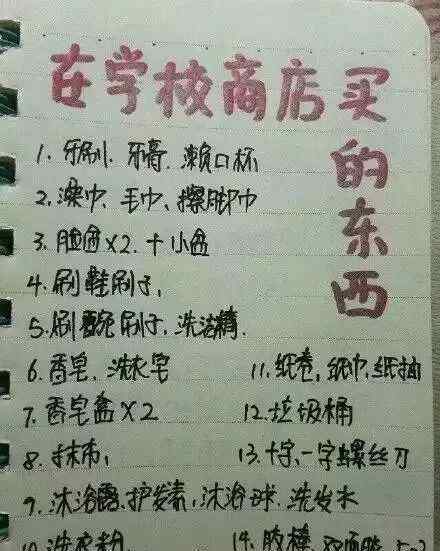 在学校商店买的东西
1. 牙刷、牙膏、漱口杯
2. 澡巾、毛巾、擦脚巾
3. 脸盆×2.十小盆
4. 刷鞋刷子,
5. 刷碗刷子,洗洁精.
6. 香皂,洗衣皂
7. 香皂盒×2
8. 抹布,
9. 沐浴露.护发素,沐浴球.洗发水
10. 洗衣粉
11. 纸卷,纸巾,纸抽
12. 垃圾桶
13. 十字、一字螺丝刀
14. 胶棒